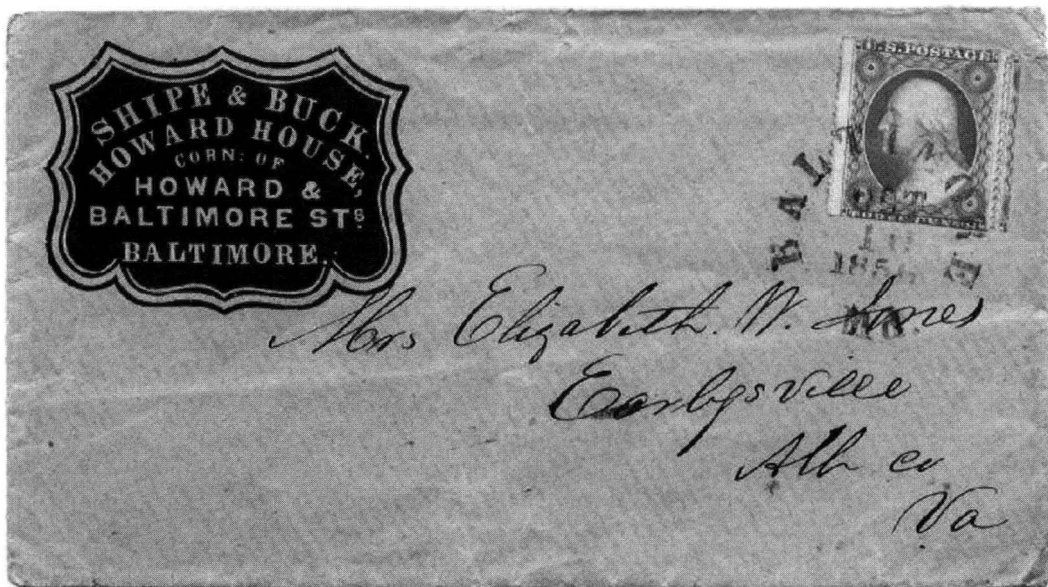 SHIPE & BUCK.
HOWARD HOUSE,
CORN: OF
HOWARD &
BALTIMORE STS.
BALTIMORE.
U.S. POSTAGE
BALT
OCT
185
MD.
Mrs Elizabeth. W. Jones
Earlysville
Alb co
Va